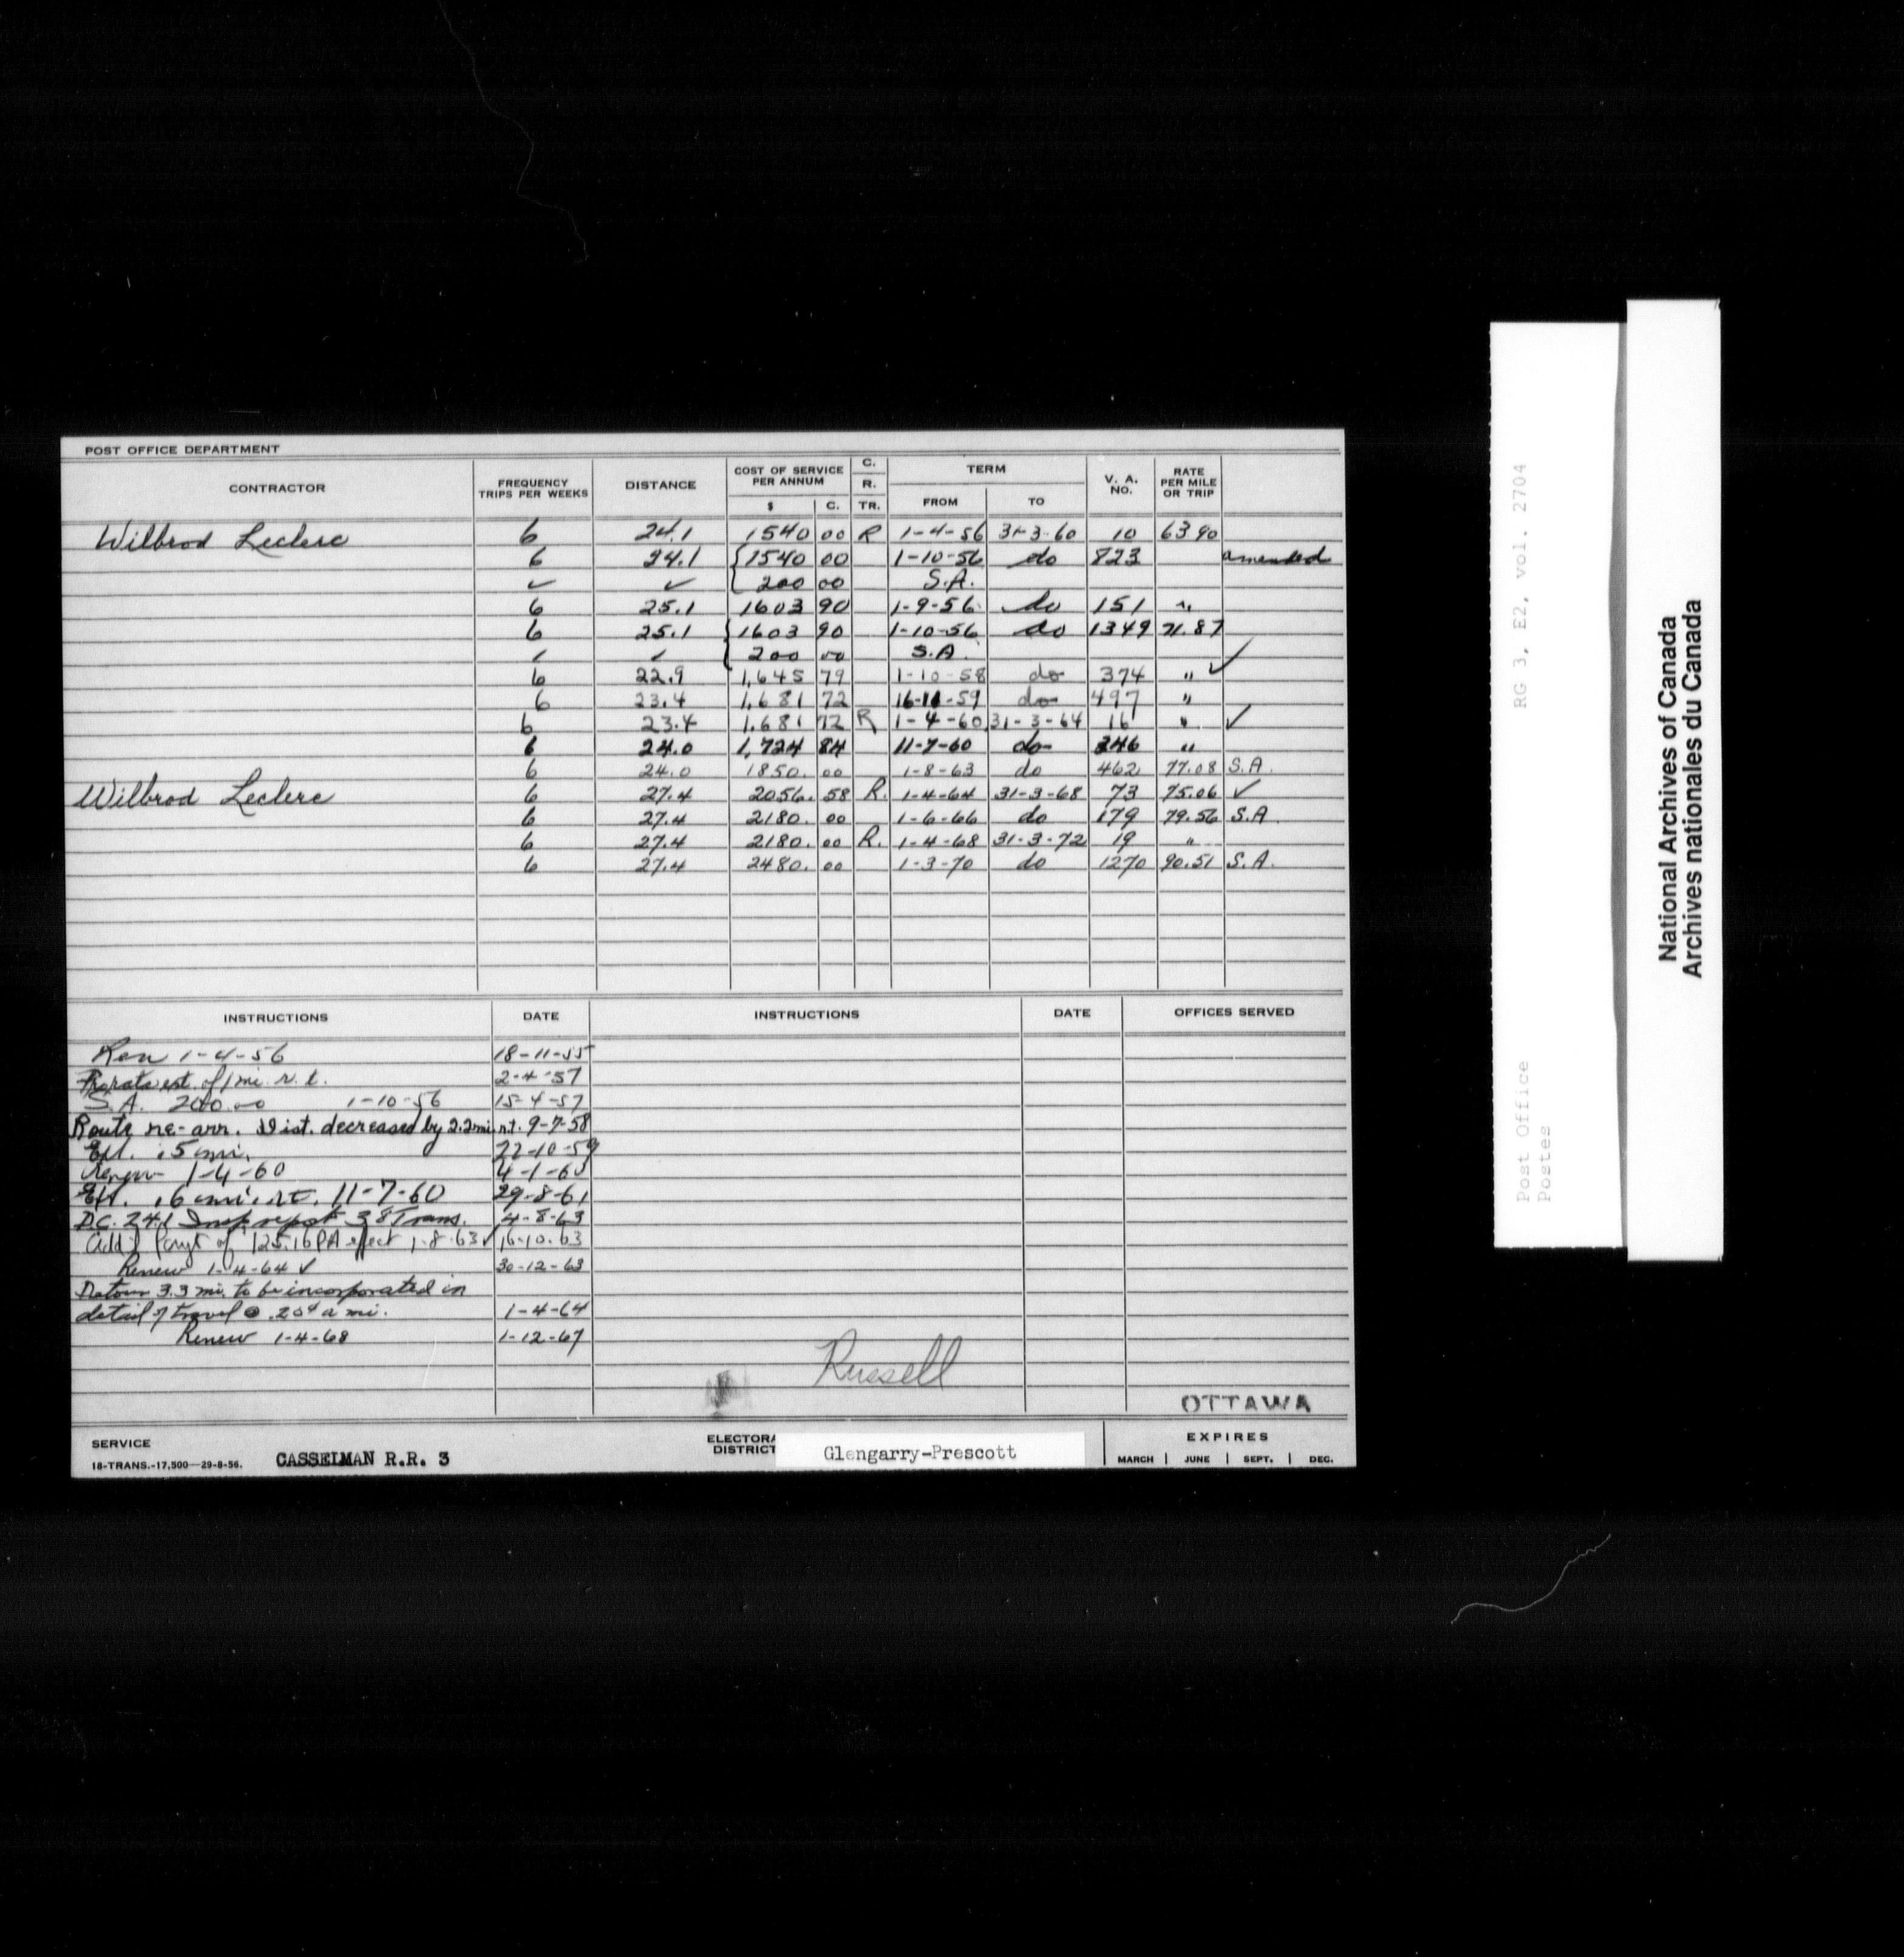 POST OFFICE DEPARTMENT
CONTRACTOR FREQUENCY TRIPS PER WEEKS DISTANCE COST OF SERVICE PER ANNUM $ C. C. R. TR. TERM FROM TO V. A. NO. RATE PER MILE OR TRIP
Wilbrod Leclerc 6 24.1 1540 00 R 1-4-56 31-3-60 10 63 90
6 24.1 {1540 00 1-10-56 do 823 amended
✓ ✓ 200 00 S.A.
6 25.1 1603 90 1-9-56 do 151 "
6 25.1 {1603 90 1-10-56 do 1349 71.87
✓ ✓ 200 00 S.A.
6 22.9 1,645 79 1-10-58 do 374 " ✓
6 23.4 1,681 72 16-11-59 do 497 "
6 23.4 1,681 72 R 1-4-60 31-3-64 16 " ✓
6 24.0 1,724 84 11-7-60 do 246 "
6 24.0 1850. 00 1-8-63 do 462 77.08 S.A.
Wilbrod Leclerc 6 27.4 2056. 58 R. 1-4-64 31-3-68 73 75.06 ✓
6 27.4 2180. 00 1-6-66 do 179 79.56 S.A.
6 27.4 2180. 00 R. 1-4-68 31-3-72 19 "
6 27.4 2480. 00 1-3-70 do 1270 90.51 S.A.
INSTRUCTIONS DATE INSTRUCTIONS DATE OFFICES SERVED
Ren 1-4-56 18-11-55
Prorata est. of 1 mi. r. t. 2-4-57
S.A. 200.00 1-10-56 15-4-57
Route re-arr. Dist. decreased by 2.2 mi. r.t. 9-7-58
Ext. .5 mi. 22-10-59
Renew 1-4-60 4-1-60
Ext. .6 mi. rt. 11-7-60 29-8-61
D.C. 24.1 Insp. report 38 Trans. 4-8-63
Add'l Paym't of 125.16 PA effect 1-8-63 ✓ 16-10-63
Renew 1-4-64 ✓ 30-12-63
Detour 3.3 mi. to be incorporated in
detail of travel @ .20¢ a mi. 1-4-64
Renew 1-4-68 1-12-67
Russell
OTTAWA
SERVICE CASSELMAN R.R. 3 ELECTORA DISTRICT Glengarry-Prescott EXPIRES
18-TRANS.-17,500—29-8-56. MARCH JUNE SEPT. DEC.
RG 3, E2, vol. 2704
Post Office
Postes
National Archives of Canada
Archives nationales du Canada